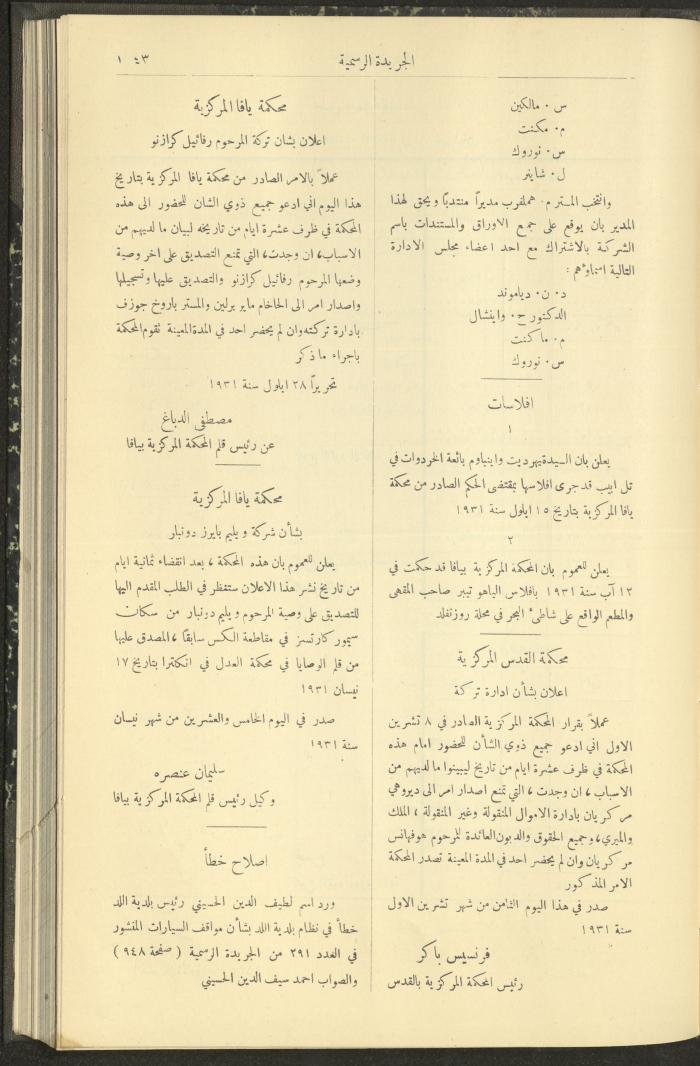 الجريدة الرسمية
س . مالكين
م . مكنت
س . نوروك
ل . شاينر
وانتخب المستر م . هملفرب مديراً منتدباً ويحق لهذا
المدير بان يوقع على جميع الاوراق والمستندات باسم
الشركة بالاشتراك مع احد اعضاء مجلس الادارة
التالية اسماؤهم :
د . ن . دياموند
الدكتور ح . واينشال
م . ماكنت
س . نوروك
افلاسات
١
يعلن بان السيدة يهوديت واينباوم بائعة الخردوات في
تل ابيب قد جرى افلاسها بمقتضى الحكم الصادر من محكمة
يافا المركزية بتاريخ ١٥ ايلول سنة ١٩٣١
٢
يعلن للعموم بان المحكمة المركزية بيافا قد حكمت في
١٢ آب سنة ١٩٣١ بافلاس الياهو تيبر صاحب المقهى
والمطعم الواقع على شاطئ البحر في محلة روزنفلد
محكمة القدس المركزية
اعلان بشأن ادارة تركة
عملاً بقرار المحكمة المركزية الصادر في ٨ تشرين
الاول اني ادعو جميع ذوي الشأن للحضور امام هذه
المحكمة في ظرف عشرة ايام من تاريخ ليبينوا ما لديهم من
الاسباب ، ان وجدت ، التي تمنع اصدار امر الى ديروهي
مركريان بادارة الاموال المنقولة وغير المنقولة ، الملك
والميري ، وجميع الحقوق والديون العائدة للمرحوم هوفهانس
مركريان وان لم يحضر احد في المدة المعينة تصدر المحكمة
الامر المذكور
صدر في هذا اليوم الثامن من شهر تشرين الاول
سنة ١٩٣١
فرنسيس باكر
رئيس المحكمة المركزية بالقدس
محكمة يافا المركزية
اعلان بشان تركة المرحوم رفائيل كرازنو
عملاً بالامر الصادر من محكمة يافا المركزية بتاريخ
هذا اليوم اني ادعو جميع ذوي الشان للحضور الى هذه
المحكمة في ظرف عشرة ايام من تاريخه لبيان ما لديهم من
الاسباب ، ان وجدت ، التي تمنع التصديق على اخر وصية
وضعها المرحوم رفائيل كرازنو والتصديق عليها وتسجيلها
واصدار امر الى الحاخام ماير برلين والمستر باروخ جوزف
بادارة تركته وان لم يحضر احد في المدة المعينة تقوم المحكمة
باجراء ما ذكر
تحريراً ٢٨ ايلول سنة ١٩٣١
مصطفى الدباغ
عن رئيس قلم المحكمة المركزية بيافا
محكمة يافا المركزية
بشأن شركة ويليم بايرز دونبار
يعلن للعموم بان هذه المحكمة ، بعد انقضاء ثمانية ايام
من تاريخ نشر هذا الاعلان ستنظر في الطلب المقدم اليها
للتصديق على وصية المرحوم ويليم دونبار من سكان
سيمور كارتسز في مقاطعة الكس سابقاً ، المصدق عليها
من قلم الوصايا في محكمة العدل في انكلترا بتاريخ ١٧
نيسان ١٩٣١
صدر في اليوم الخامس والعشرين من شهر نيسان
سنة ١٩٣١
سليمان عنصره
وكيل رئيس قلم المحكمة المركزية بيافا
اصلاح خطأ
ورد اسم لطيف الدين الحسيني رئيس بلدية اللد
خطأ في نظام بلدية اللد بشأن مواقف السيارات المنشور
في العدد ٢٩١ من الجريدة الرسمية ( صفحة ٩٤٨ )
والصواب احمد سيف الدين الحسيني